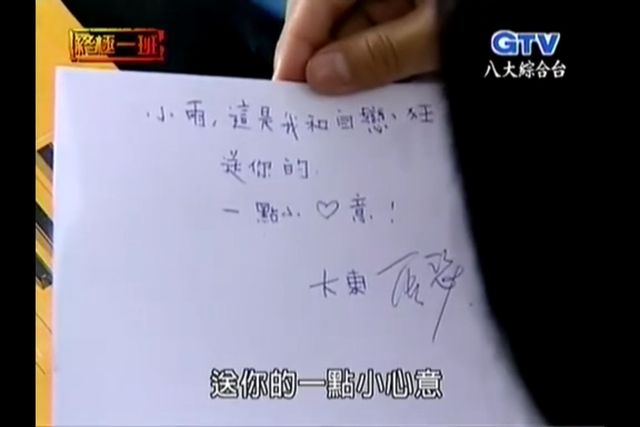 終極一班
GTV
八大綜合台
小雨,這是我和自戀狂
送你的
一點小♡意!
大東
送你的一點小心意